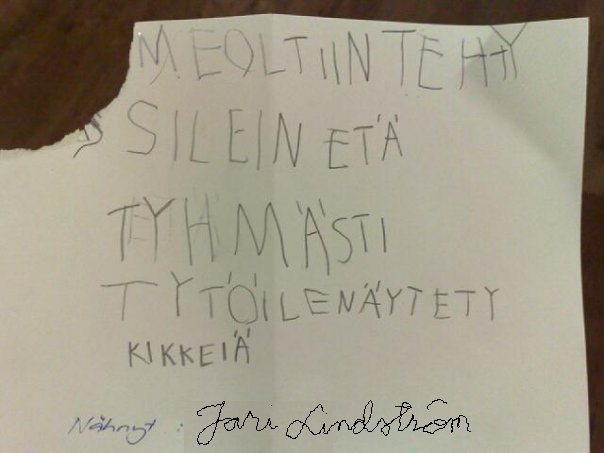 MEOLTIIN TEHTY
SILEIN ETÄ
TYHMÄSTI
TYTÖILENÄYTETY
KIKKEIÄ
Nähnyt : Jari Lindström